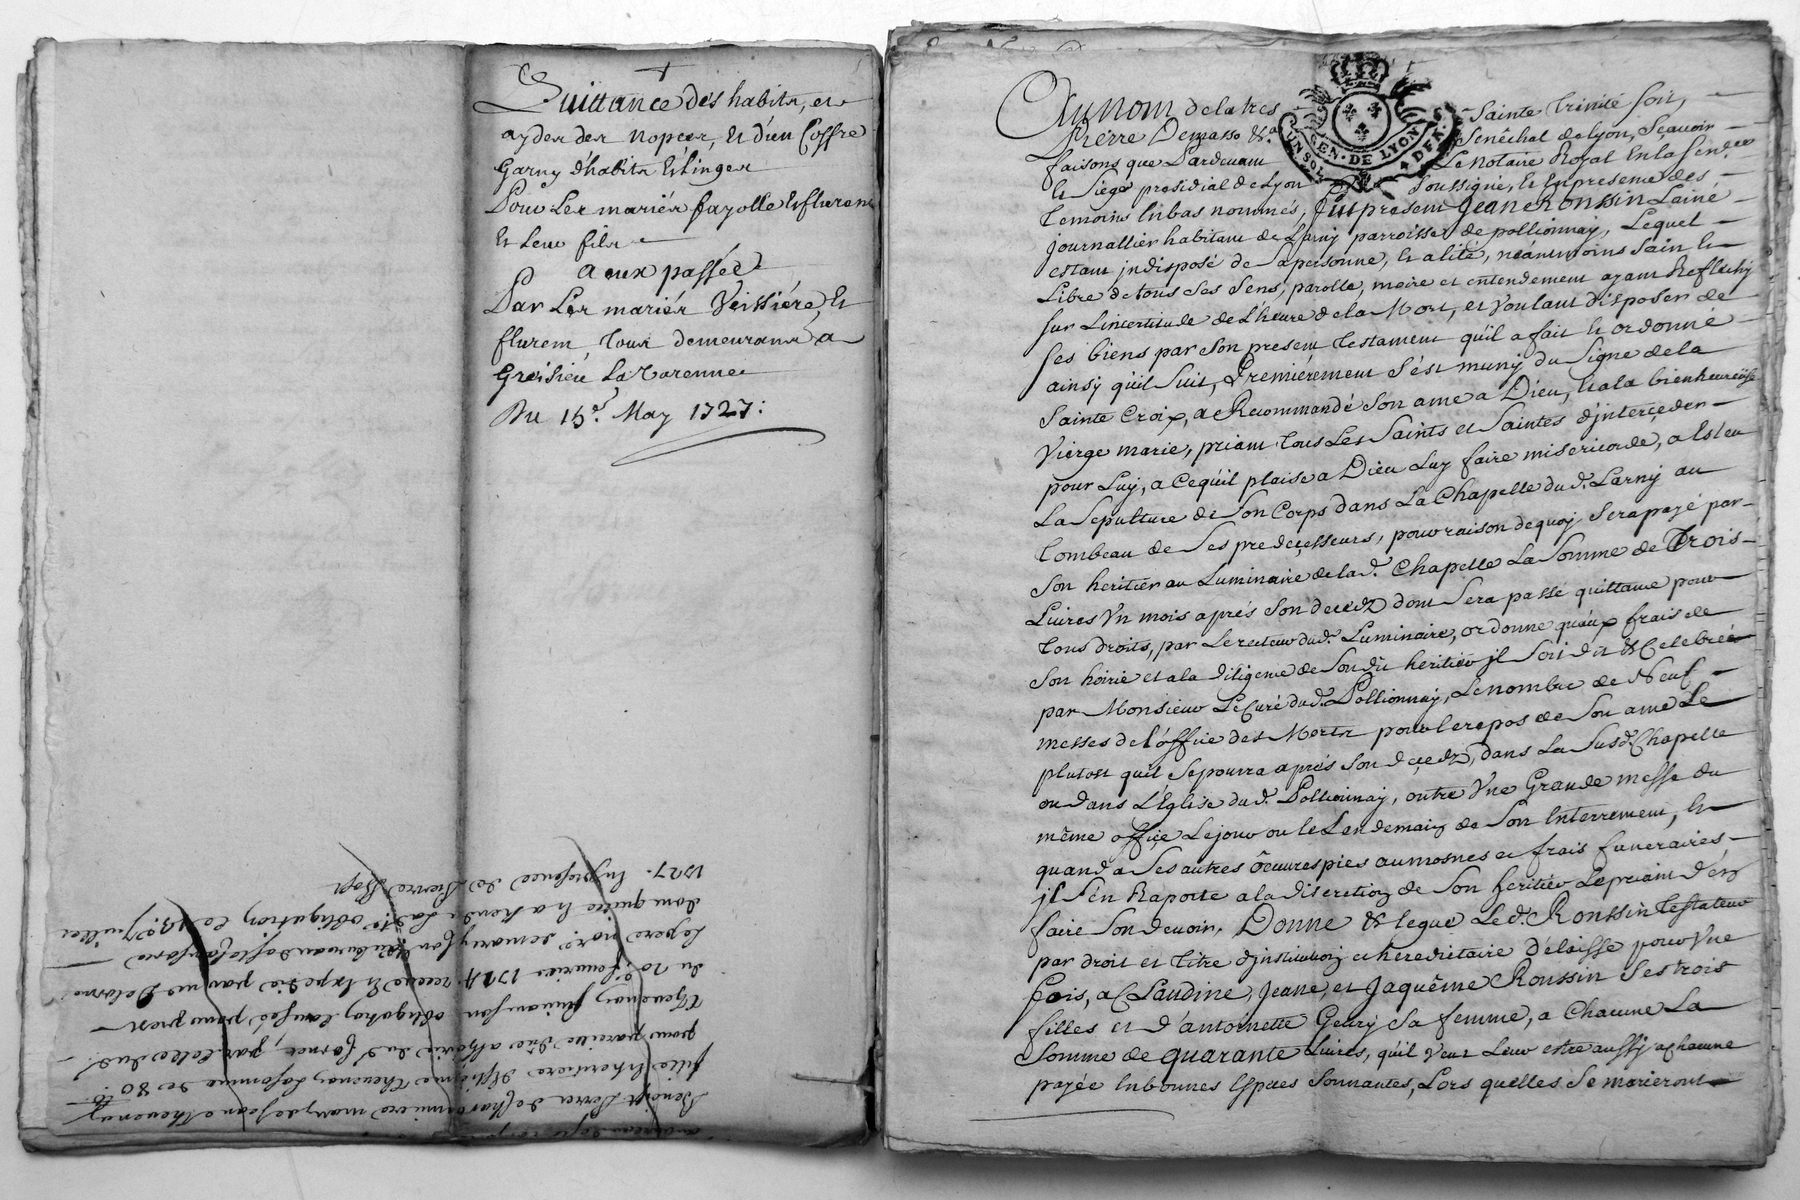 Quittance des habits, et
aydes des nopces, et d'un Coffre
Garny d'habits et Linges
Pour Les mariés fayolle et flurem
et Leur fils
a eux passée
Par Les mariés Veissiére, et
flurem tous demeurans a
Greisieu La Varenne
Du 15e. May 1727:
Au nom de la tres Sainte Trinité soit,
Pierre Demasso &a. Senéchal de Lyon, Sçavoir
faisons que Pardevant Le Notaire Royal en la Sen.ée
et Siege presidial de Lyon soussigné, et en presence des
temoins en bas nommés, fut present Jean Ronssin Lainé
journallier habitant de Larny parroisse de pollionnay, Lequel
estant jndisposé de sa personne, et alité, néanmoins sain et
Libre de tous ses sens, parolle, moire et entendement ayant Reflechy
sur L'incertitude de L'heure de la Mort, et voulant disposer de
ses biens par son present testament qu'il a fait et ordonné
ainsy qu'il suit, Premiérement s'est muny du signe de la
Sainte Croix, a Recommandé son ame a Dieu, et a la bienheureuse
Vierge marie, priant tous Les Saints et Saintes d'jnterçeder
pour Luy, a ce qu'il plaise a Dieu Luy faire misericorde, a Esleu
La sepulture de son Corps dans La Chapelle dud. Larny au
tombeau de ses predeçesseurs, pour raison de quoy sera payé par
son heritier au Luminaire de lad. Chapelle La somme de Trois
Livres Vn mois aprés son decedz dont sera passé quittance pour
tous droits, par Le recteur dud. Luminaire, ordonne qu'aux frais de
son hoirie et a la diligence de son dit heritier jl soit dit & Celebrée
par Monsieur Le Curé dud. Pollionnay, Le nombre de Neuf
messes de l'office des Morts pour le repos de son ame Le
plutost qu'il se pourra aprés son deçedz, dans La susd. Chapelle
ou dans L'Eglise dud. Pollionnay, outre Vne Grande messe du
même office Le jour ou le Lendemain de son Enterrement, et
quand a ses autres oeuvres pies aumosnes et frais funeraires
jl s'en Raporte a la discretion de son heritier Le priant d'en
faire son devoir, Donne & legue Led. Ronssin testateur
par droit et titre d'jnstitution et hereditaire délaisse pour Vne
fois, a Claudine, Jeane, et Jaquême Roussin ses trois
filles et d'antoinette Geury sa femme, a Chacune La
somme de quarante Livres, qu'il veut Leur estre aussy a chacune
payée en bonnes Especes sonnantes, Lors quelles se marieront
GEN. DE LYON
Benoist
fille et heritiere Thevenon La somme de 80 tt
du 20e fevrier 1724 receu et Expedié par me Delorme
obligation Le
1727. En presence de Pierre